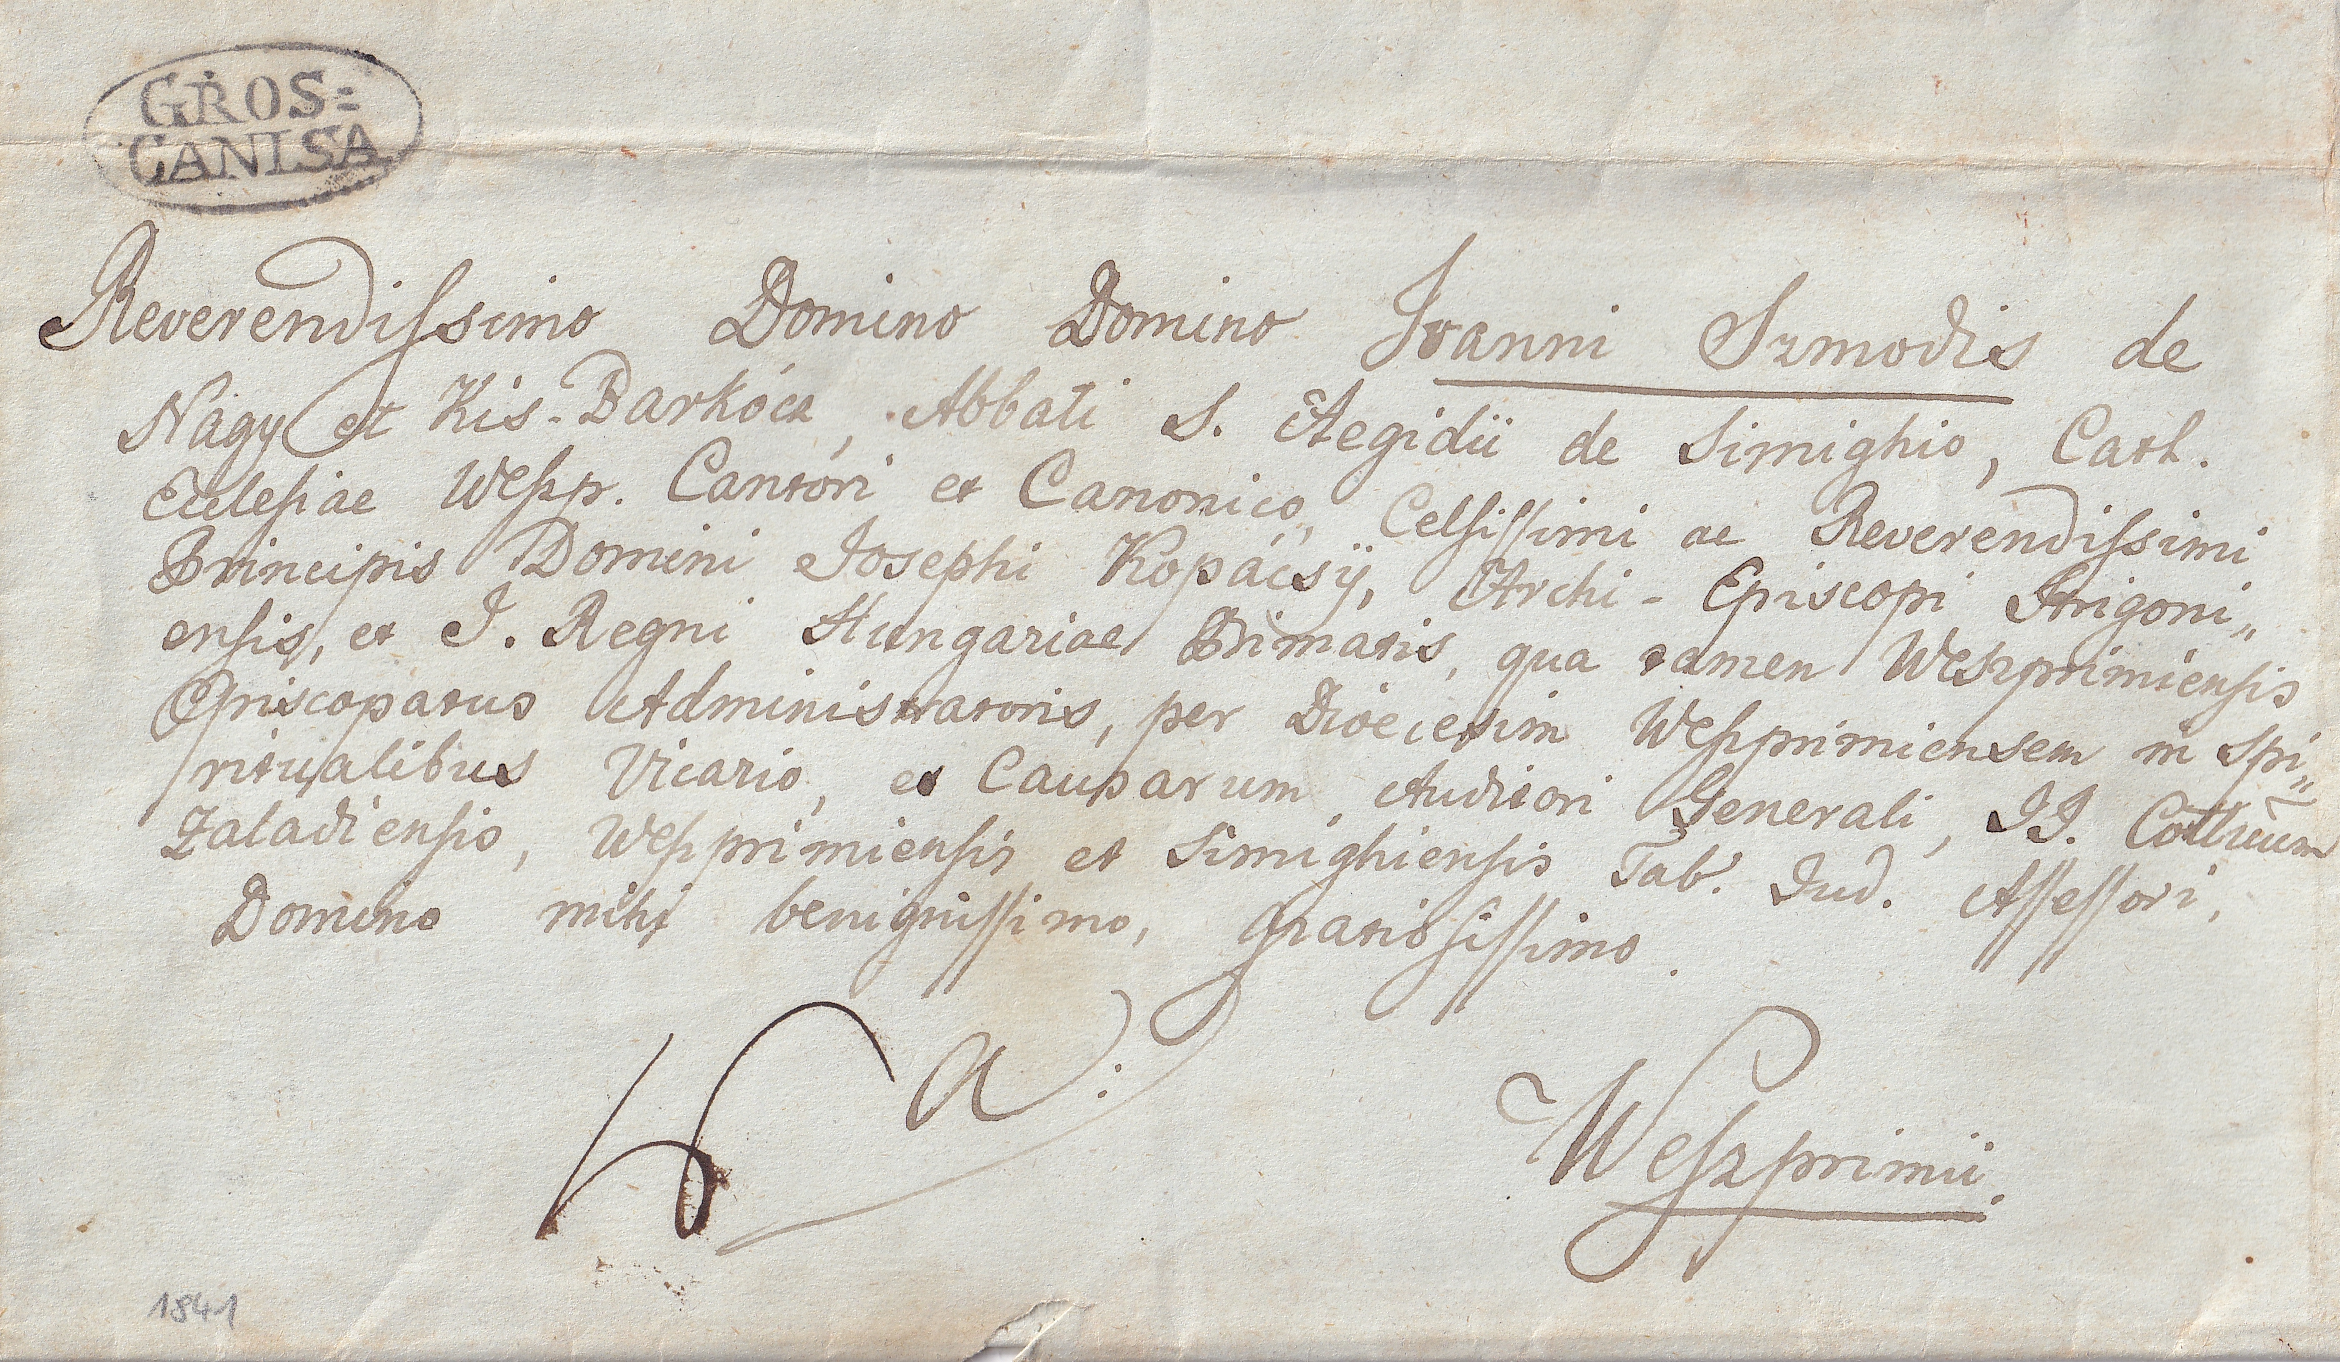 GROS=
CANISA
Reverendissimo Domino Domino Joanni Szmodis de
Nagy et Kis-Barkócz, Abbati S. Aegidii de Simighio, Cath.
Ecclesiae Weszp. Cantori et Canonico, Celsissimi ac Reverendissimi
Principis Domini Josephi Kopácsÿ, Archi-Episcopi Strigoni„
ensis, et I. Regni Hungariae Primatis, qua tamen Weszprimiensis
Episcopatus Administratoris, per Dioecesim Weszprimiensem in Spi„
ritualibus Vicario, et Causarum Auditori Generali, II. Cottuum
Zaladiensis, Weszprimiensis et Simighiensis Tab. Jud. Assessori,
Domino mihi benignissimo, gratiosissimo.
a:
Weszprimii.
1841